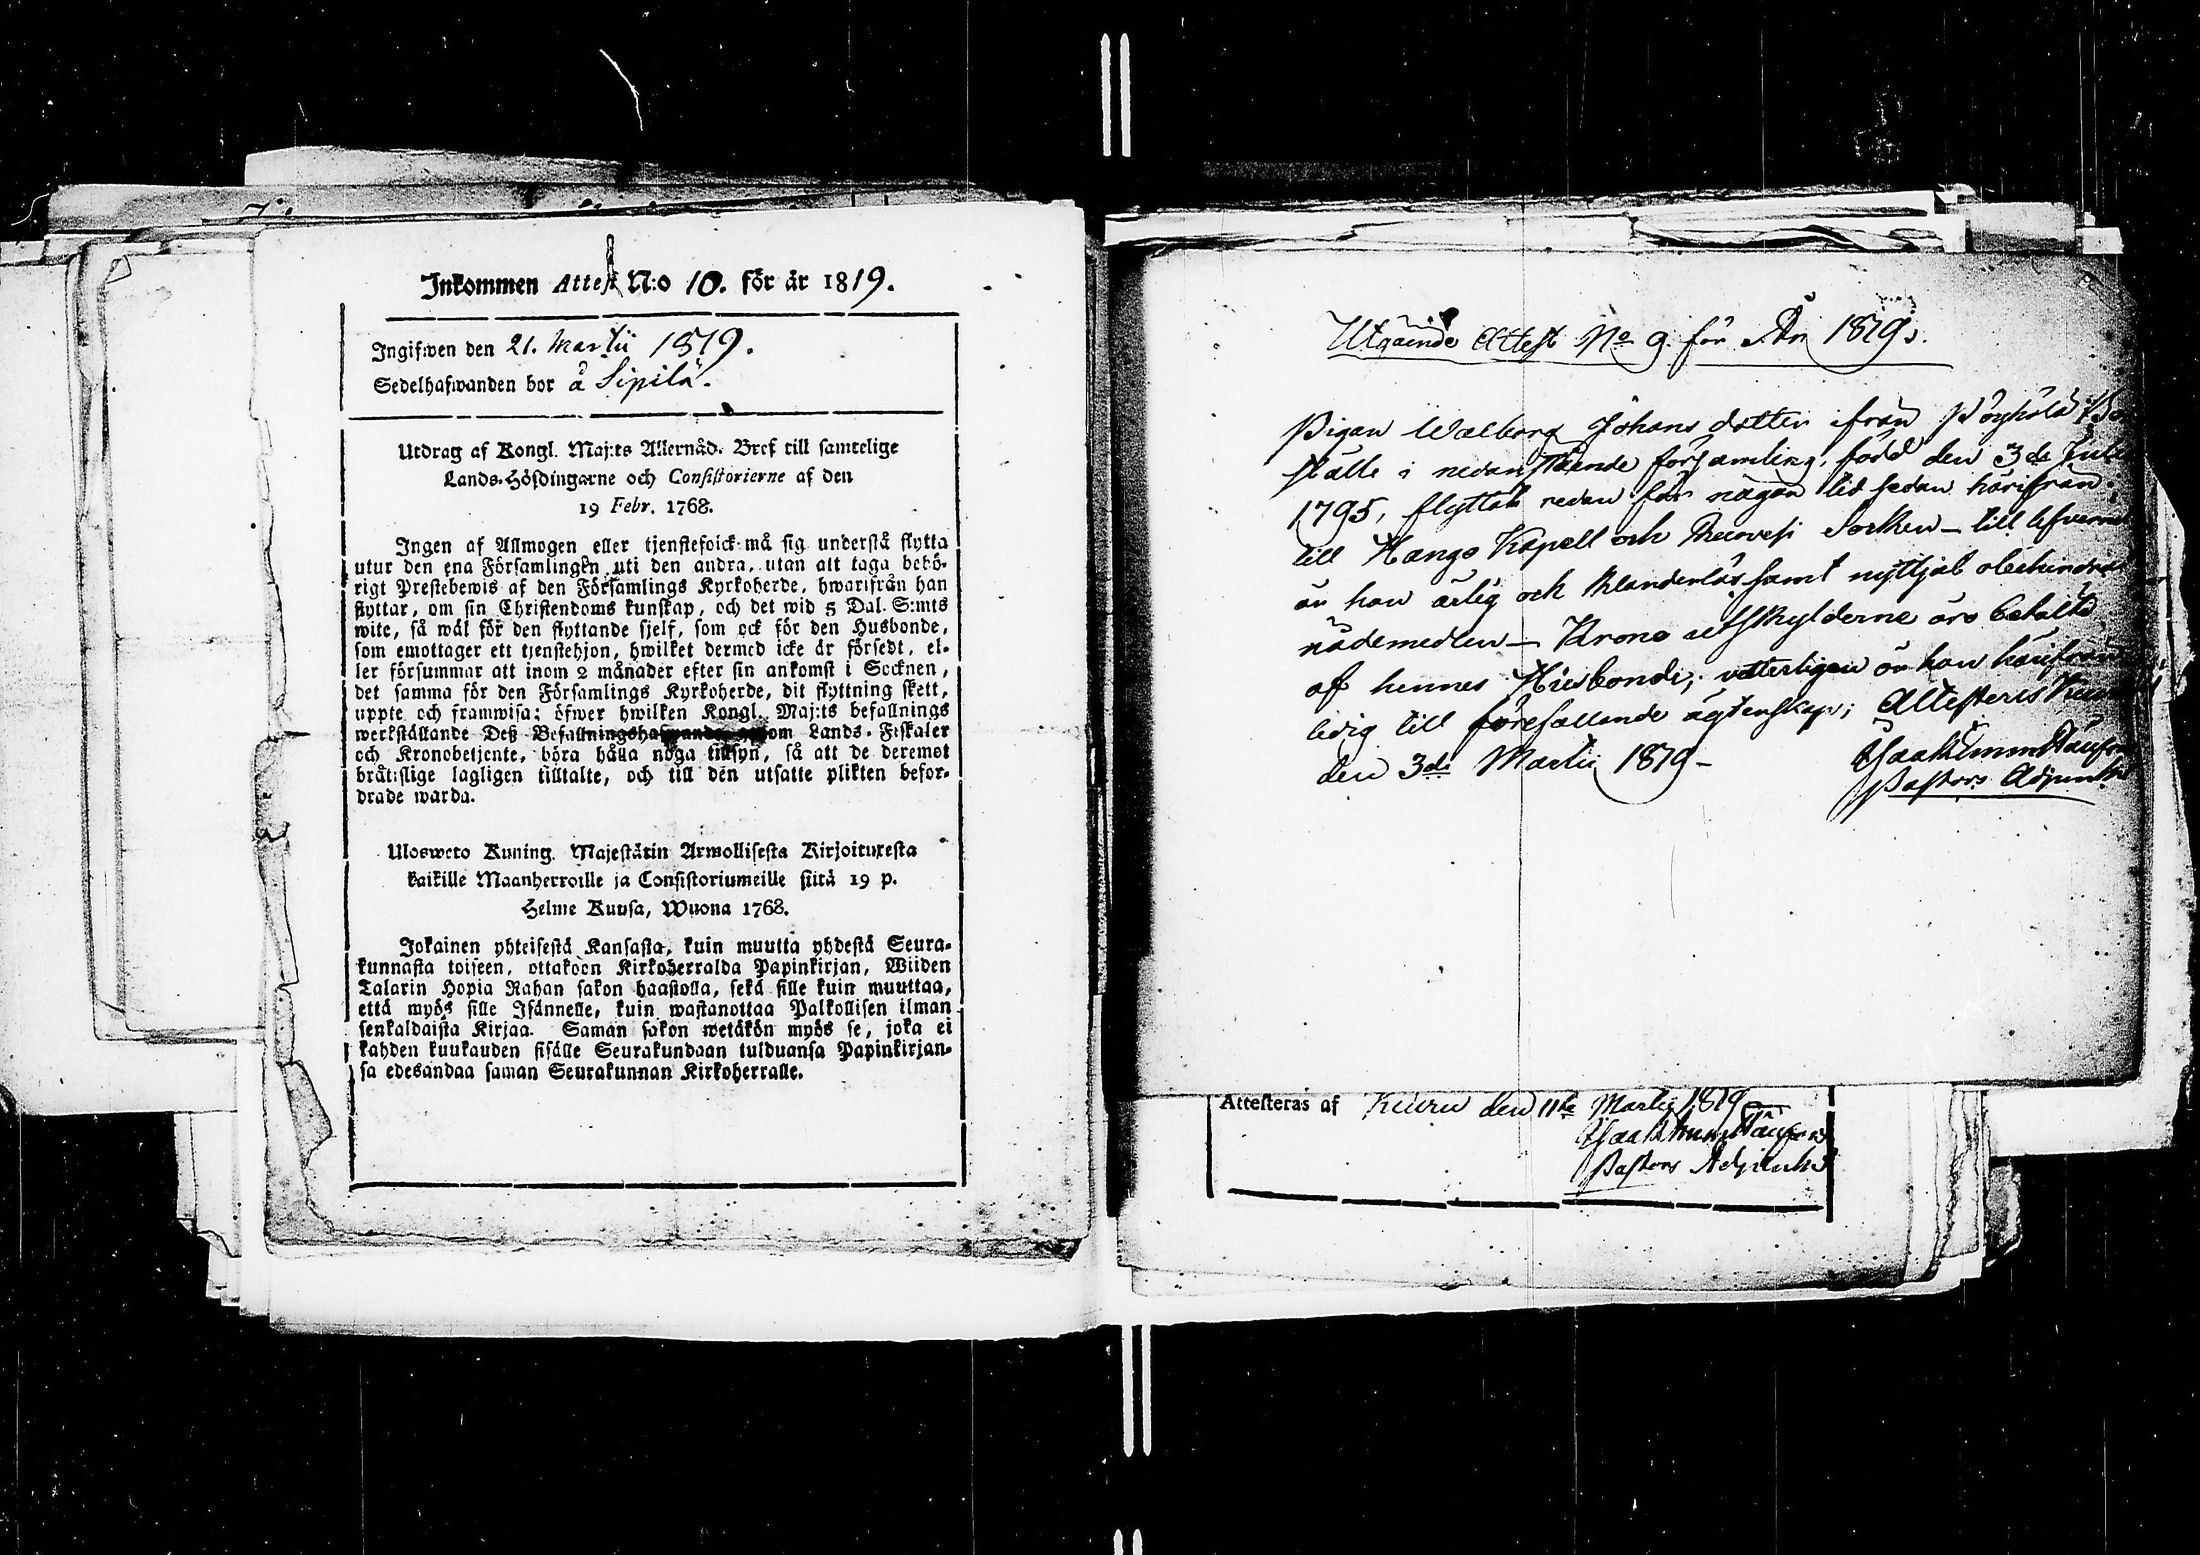 Inkommen Attest N:o 10. för år 1819.
Ingifwen den 21. Martii 1819.
Sedelhafwanden bor å Sipilä.
Utdrag af Kongl. Maj:ts Allernåd. Bref till samtelige
Lands-Höfdingarne och Consistorierne af den
19 Febr. 1768.
Ingen af Allmogen eller tjenstefolck må sig understå flytta
utur den ena Församlingen uti den andra, utan att taga behö-
rigt Prestebewis af den Församlings Kyrkoherde, hwarifrån han
flyttar, om sin Christendoms kunskap, och det wid 5 Dal. S:mts
wite, så wäl för den flyttande sjelf, som ock för den Husbonde,
som emottager ett tjenstehjon, hwilket dermed icke är försedt, el-
ler försummar att inom 2 månader efter sin ankomst i Socknen,
det samma för den Församlings Kyrkoherde, dit flyttning skett,
uppte och framwisa; öfwer hwilken Kongl. Maj:ts befallnings
werkställande Deß Befallningshafwande genom Lands-Fiskaler
och Kronobetjente, böra hålla noga tillsyn, så att de deremot
brätislige lagligen tilltalte, och till den utsatte plikten befor-
drade warda.
Ulosweto Kuning. Majestätin Armollisesta Kirjoituxesta
kaikille Maanherroille ja Consistoriumeille siitä 19 p.
Helme Kuusa, Wuona 1768.
Jokainen yhteisestä Kansasta, kuin muutta yhdestä Seura-
kunnasta toiseen, ottakoon Kirkoherralda Papinkirjan, Wiiden
Talarin Hopia Rahan sakon haastolla, sekä sille kuin muuttaa,
että myös sille Isännelle, kuin wastanottaa Palkollisen ilman
senkaldaista Kirjaa. Saman sakon wetäkön myös se, joka ei
kahden kuukauden sisälle Seurakundaan tulduansa Papinkirjan-
sa edesandaa saman Seurakunnan Kirkoherralle.
Utgående Attest No 9 för År 1819.
Pigan Walborg Johans dotter ifrån
ställe i nedanstående församling, född den 3de
1795, flyttat redan för någon tid sedan härifrån
till Hango Kapell och Ruovesi Socken – till
är hon ärlig och klanderlös samt nyttjat obehindrat
nådemedlen – Krono utskylderne äro betalte
af hennes Husbonde; vitterligen är hon härifrån
ledig till förefallande ägtenskap; Attesteras
den 3de Martii 1819 –
Pastors Adjunkt
Attesteras af Keuru den 11te Martii 1819
Pastors Adjunkt